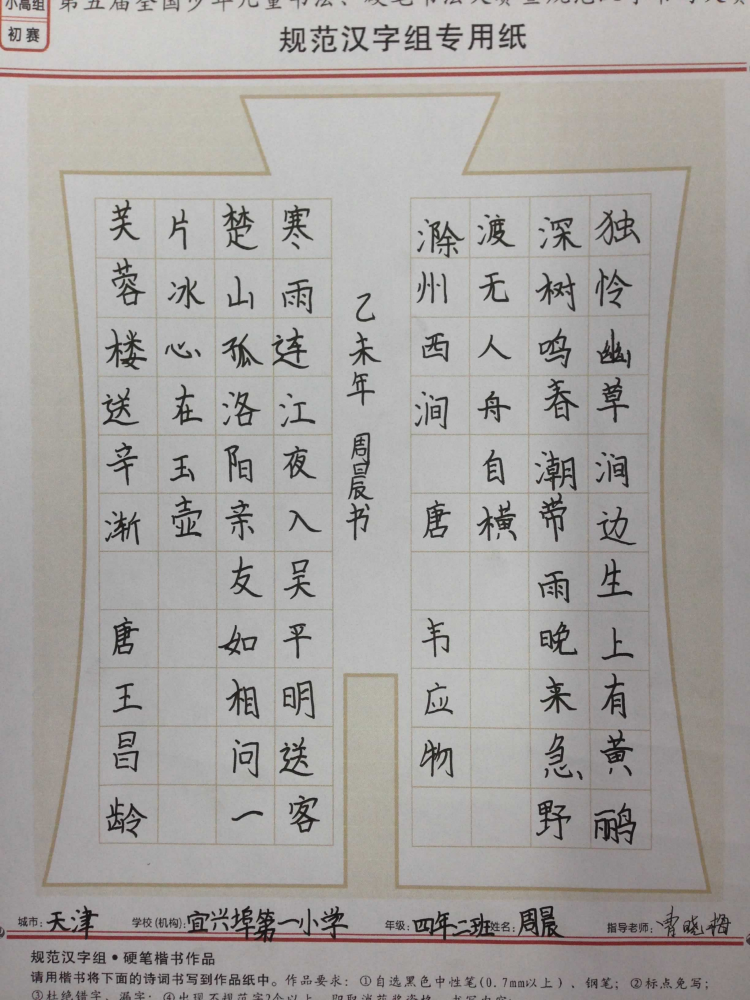 小高组
初赛
规范汉字组专用纸
独怜幽草涧边生上有黄鹂
深树鸣春潮带雨晚来急野
渡无人舟自横
滁州西涧 唐 韦应物
乙未年 周晨书
寒雨连江夜入吴平明送客
楚山孤洛阳亲友如相问一
片冰心在玉壶
芙蓉楼送辛渐 唐王昌龄
城市:天津 学校(机构):宜兴埠第一小学 年级:四年二班 姓名:周晨 指导老师:曹晓梅
规范汉字组·硬笔楷书作品
请用楷书将下面的诗词书写到作品纸中。作品要求:①自选黑色中性笔(0.7mm以上)、钢笔;②标点免写;